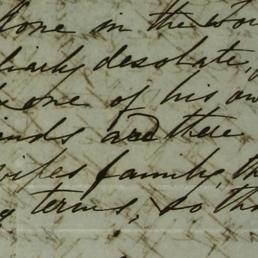 lone in the wor
liarly desolate,
one of his ow
inds are there
wifes family, th
g terms, so tha